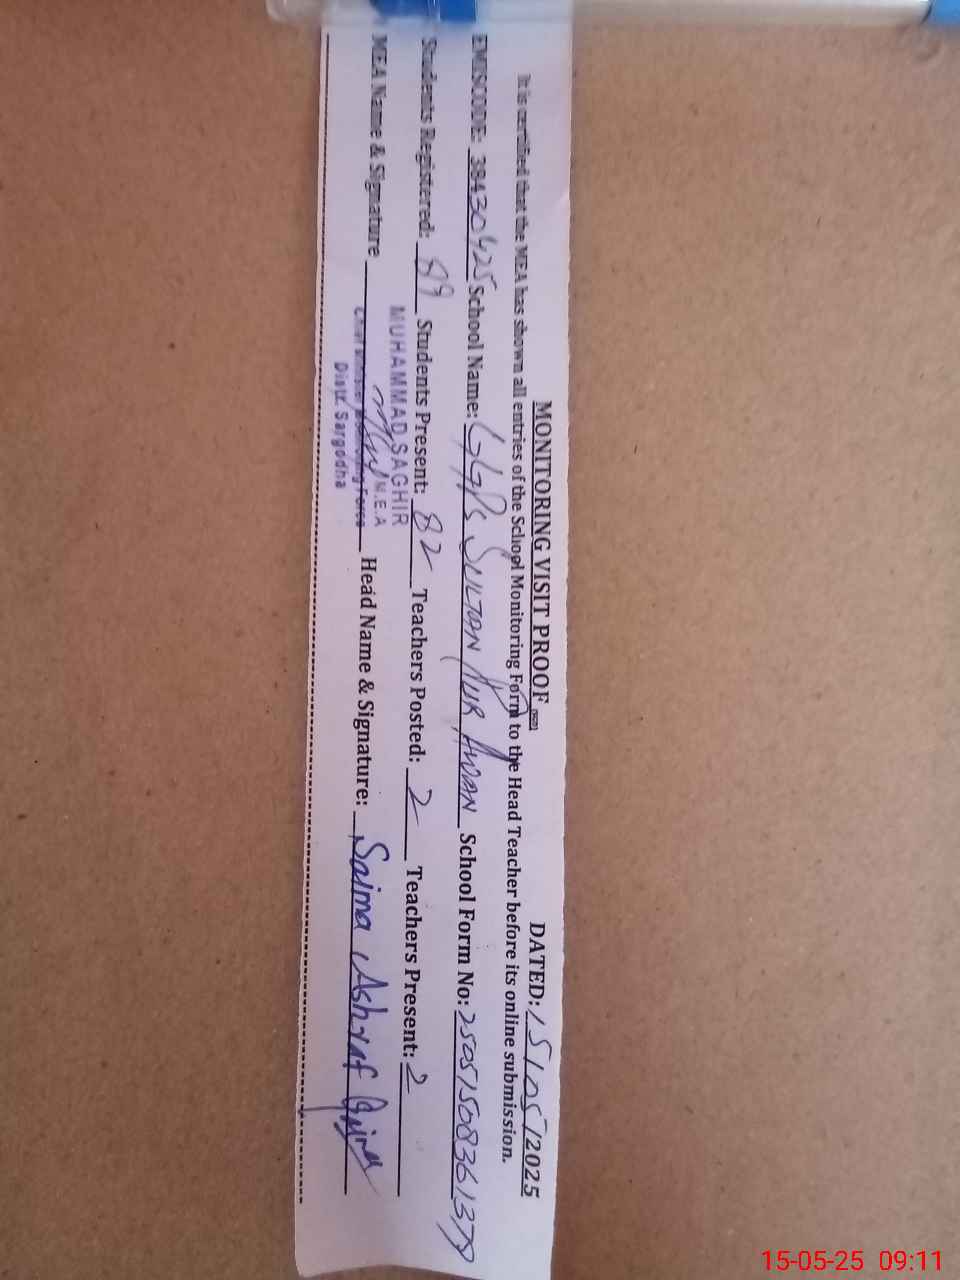 MONITORING VISIT PROOF DATED: 15/05/2025
It is certified that the MEA has shown all entries of the School Monitoring Form to the Head Teacher before its online submission.
EMISCODE: 38430425 School Name: GGPS SULTAN PUR AWAN School Form No: 25051508361379
Students Registered: 89 Students Present: 82 Teachers Posted: 2 Teachers Present: 2
MUHAMMAD SAGHIR
M.E.A
MEA Name & Signature Head Name & Signature: Saima Ashraf
Chief Minister Monitoring Force
Distt. Sargodha
15-05-25 09:11